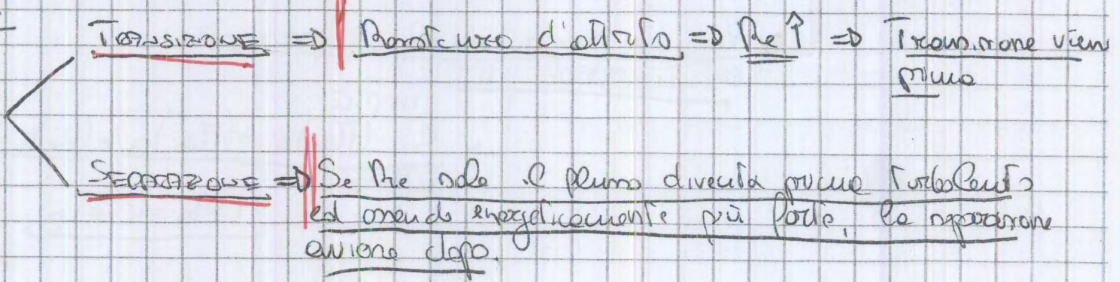 TRANSIZIONE => Baricentro d'attrito => Re ↑ => Transizione viene
prima
SEPARAZIONE => Se Re sale il flusso diventa prima turbolento
ed essendo energeticamente più forte, la separazione
avviene dopo.